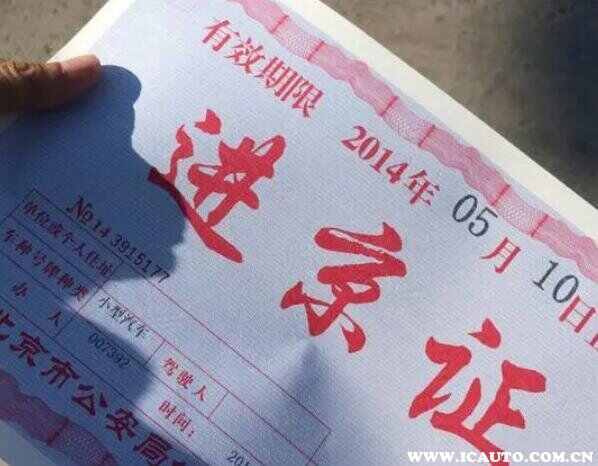 有效期限 2014年 05月 10日
进京证
№14 3915177
单位或个人住址
车种号牌种类 小型汽车 驾驶人
办人 007392 时间: 201
北京市公安局
WWW.ICAUTO.COM.CN